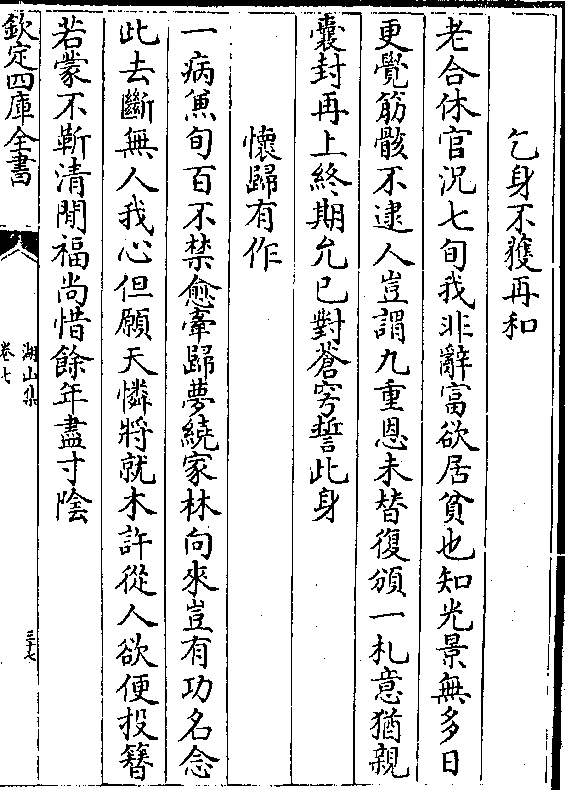 乞身不獲再和
老合休官況七旬我非辭富欲居貧也知光景無多日
更覺筋骸不逮人豈謂九重恩未替復頒一札意猶親
囊封再上終期允已對蒼穹誓此身
懷歸有作
一病兼旬百不禁愈牽歸夢繞家林向來豈有功名念
此去斷無人我心但願天憐將就木許從人欲便投簪
若蒙不靳清閒福尚惜餘年盡寸陰
欽定四庫全書
湖山集
卷七
三十七